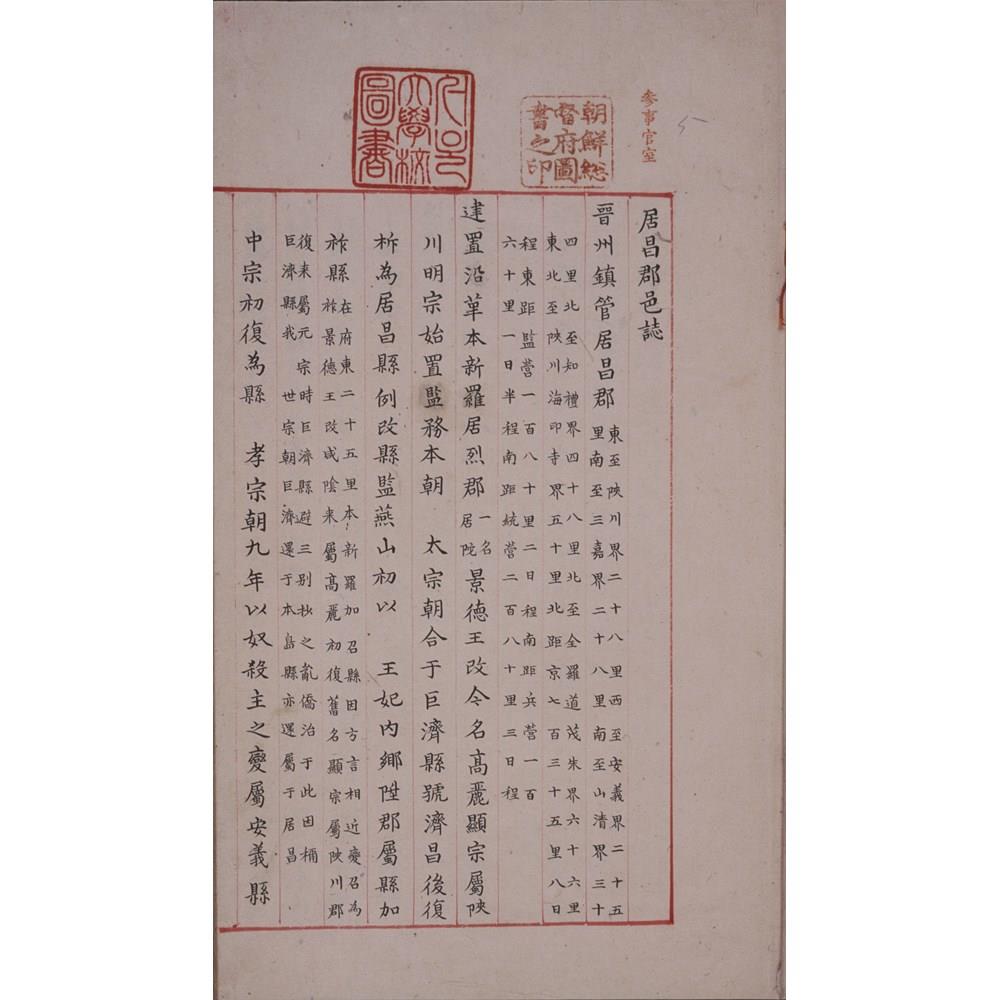 参事官室
朝鮮総
督府圖
書之印
大學校
圖書
居昌郡邑誌
晉州鎮管居昌郡
東至陜川界二十八里西至安義界二十五
里南至三嘉界二十八里南至山清界三十
四里北至知禮界四十八里北至全羅道茂朱界六十六里
東北至陜川海印寺界五十里北距京七百三十五里八日
程東距監營一百八十里二日程南距兵營一百
六十里一日半程南距統營二百八十里三日程
建置沿革本新羅居烈郡
一名
居陁
景德王改今名高麗顯宗屬陜
川明宗始置監務本朝 太宗朝合于巨濟縣號濟昌後復
析為居昌縣例改縣監燕山初以 王妃內鄉陞郡屬縣加
祚縣
在府東二十五里本新羅加召縣因方言相近變召為
祚景德王改咸陰来屬高麗初復舊名顯宗屬陜川郡
復来屬元宗時巨濟縣避三别抄之亂僑治于此因稱
巨濟縣我 世宗朝巨濟還于本島縣亦還屬于居昌
中宗初復為縣 孝宗朝九年以奴殺主之變屬安義縣